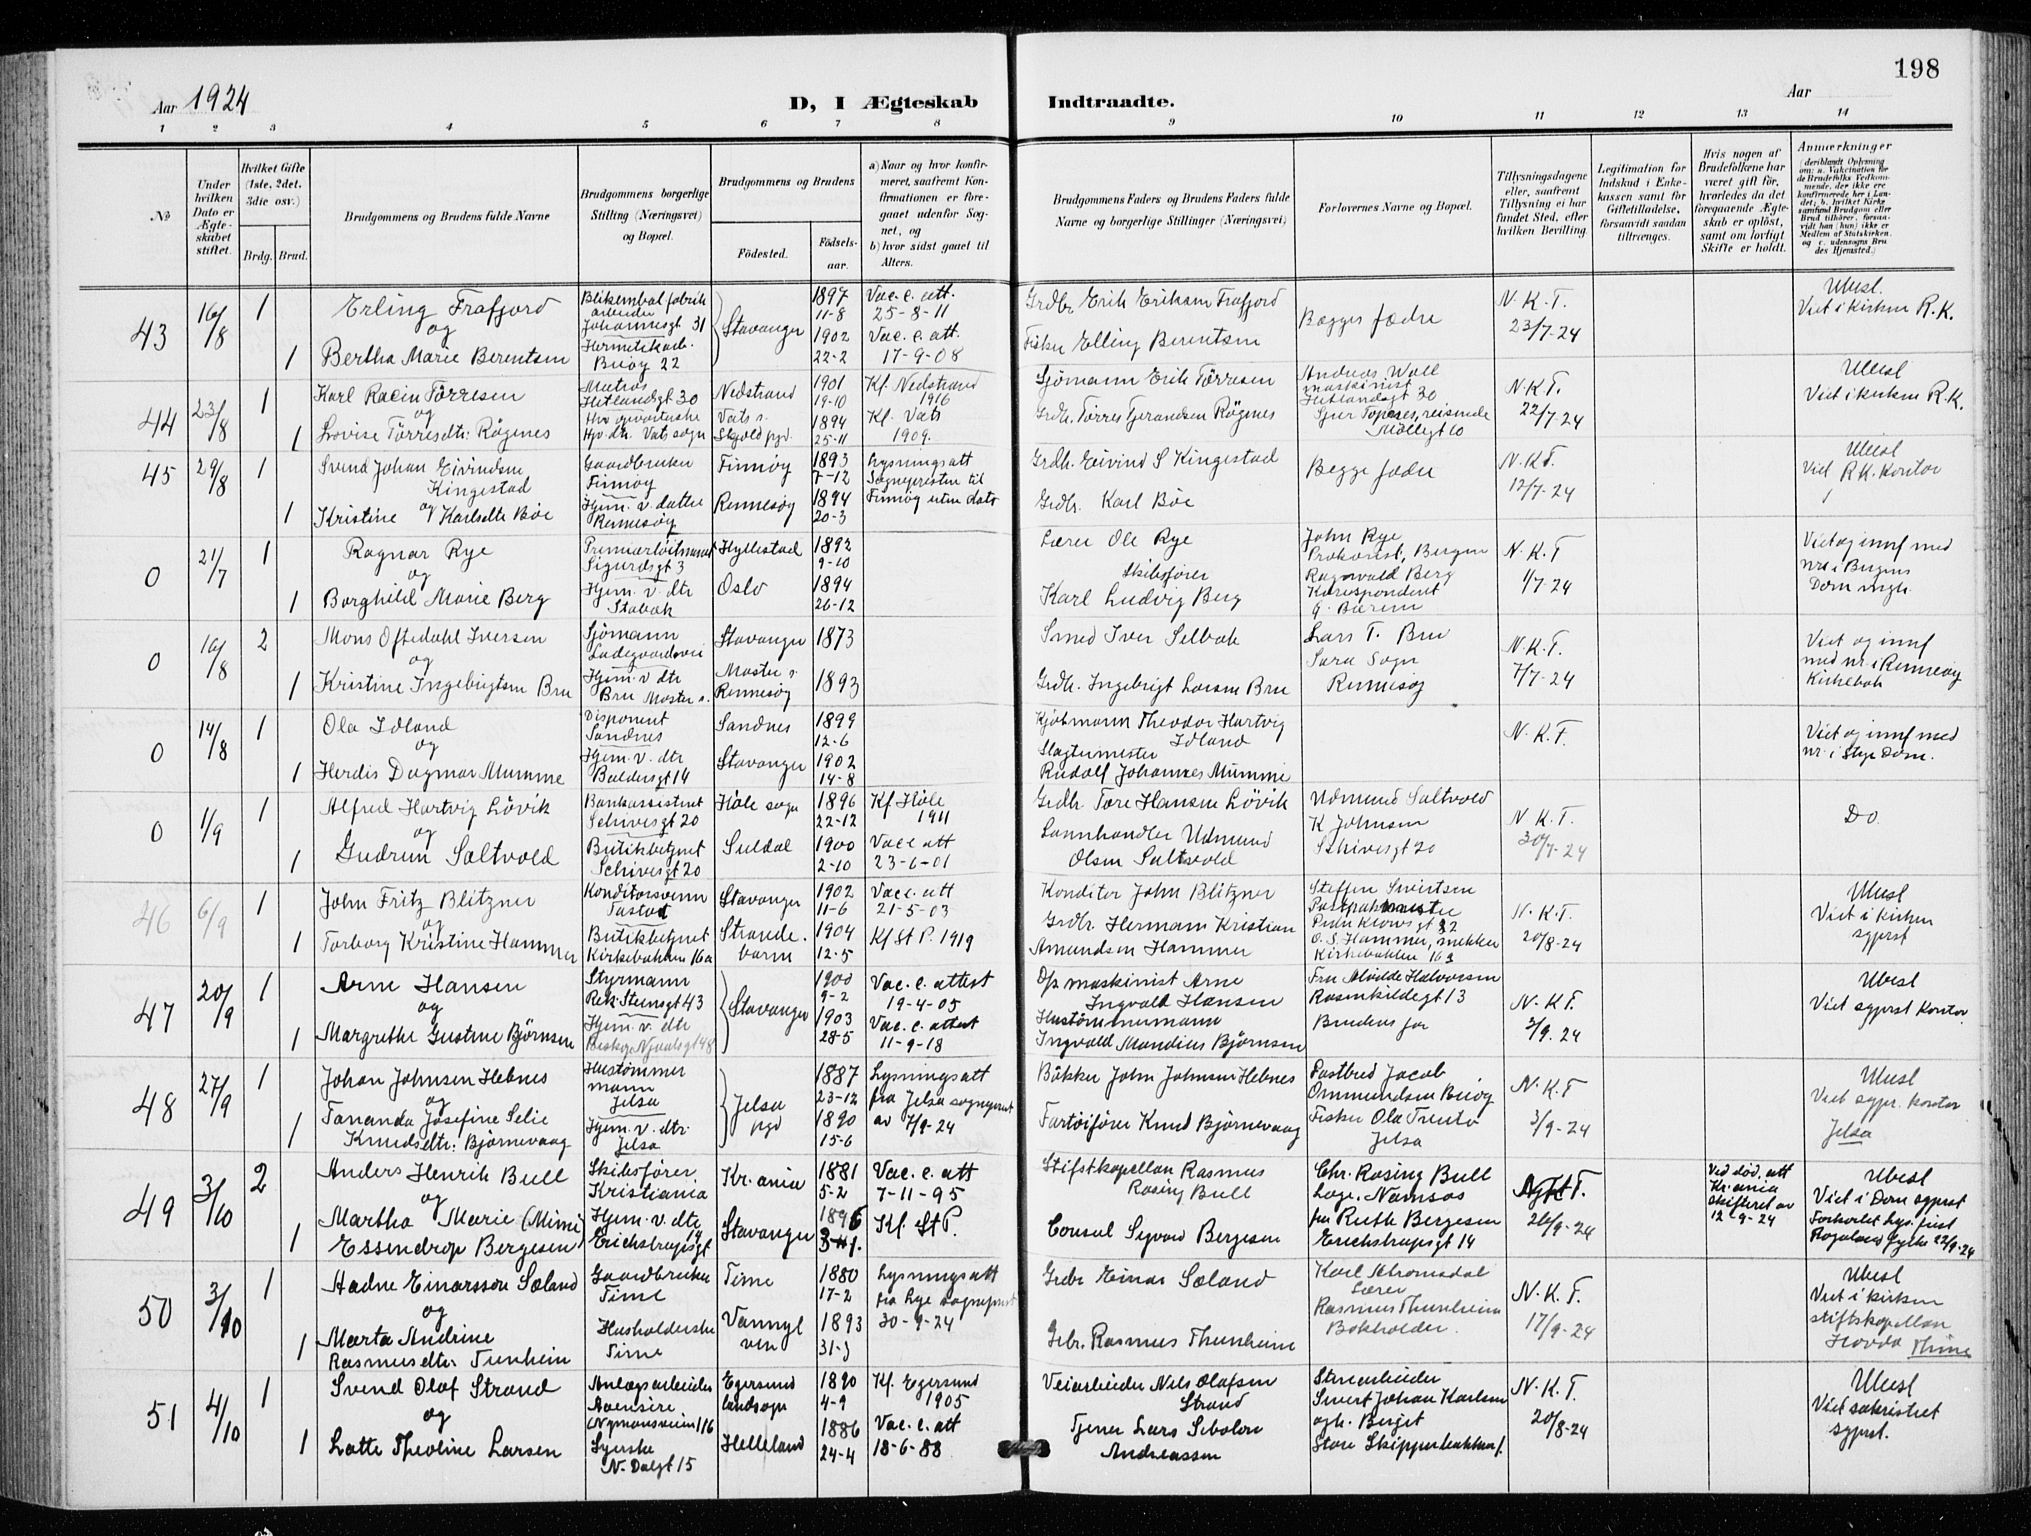 198
Aar 1924
D, I Ægteskab Indtraadte.
Aar
1 2 3 4 5 6 7 8 9 10 11 12 13 14
No
Under hvilken Dato er Ægteskabet stiftet.
Hvilket Gifte (1ste, 2det, 3die osv.)
Brdg. Brud.
Brudgommens og Brudens fulde Navne
Brudgommens borgerlige Stilling (Næringsvei) og Bopæl.
Brudgommens og Brudens
Fødested.
Fødselsaar.
a) Naar og hvor konfirmeret, saafremt Konfirmationen er foregaaet udenfor Sognet, og
b) hvor sidst gaaet til Alters.
Brudgommens Faders og Brudens Faders fulde Navne og borgerlige Stillinger (Næringsvei)
Forlovernes Navne og Bopæl.
Tillysningsdagene eller, saafremt Tillysning ei har fundet Sted, efter hvilken Bevilling.
Legitimation for Indskud i Enkekassen samt for Giftetilladelse, forsaavidt saadan tiltrænges.
Hvis nogen af Brudefolkene har været gift før, hvorledes da det foregaaende Ægteskab er opløst, samt om lovligt Skifte er holdt.
Anmerkninger
43 16/8 1 Erling Frafjord
og
1 Bertha Marie Berentsen
Johannesgt 31
Buøy 22
Stavanger
1897
11-8
1902
22-2
Vac. c. att.
25-8-11
Vac. c. att.
17-9-08
Grdbr Erik Eriksen Frafjord
Fisker Elling Berentsen
Begges fædre
N.K.T.
23/7-24
Ubesl.
Viet i kirken R.K.
44 23/8 1 Karl Racin Törresen
og
1 Lovise Törresdtr: Røgenes
Matros
Hetlandsgt 30
Hjv. dtr. Vats sogn
Nedstrand
Vats s.
Skjold pgd.
1901
19-10
1894
25-11
Kf. Nedstrand
1916
Kf. Vats
1909.
Sjömann Erik Törresen
Grdb. Törres Tjerandsen Røgenes
Andreas Wall
maskinist
Hetlandsgt 30
N.K.T.
22/7-24
Ubesl
Viet i kirken R.K.
45 29/8 1 Svend Johan Eivindsen
Kingestad
1 Kristine og Karlsdtr Bøe
Gaardbruker
Finnøy
Hjem. v. datter
Rennesøy
Finnøy
Rennesøy
1893
7-12
1894
20-3
Lysningsatt
Sognepresten til
Finnøy uten dato
Grdb. Eivind S Kingestad
Grdbr. Karl Bøe
Begge fædre
N.K.T.
12/7-24
Ubesl
Viet R.K. kontor
0 21/7 1 Ragnar Rye
og
1 Borghild Marie Berg
Premierløitnant
Sigurdsgt 3
Hjem. v. dtr
Stabæk
Hyllestad
Oslo
1892
9-10
1894
26-12
Lærer Ole Rye
Skibsfører
Karl Ludvig Berg
John Rye
Prokurist, Bergen
Ragnvald Berg
Korrespondent
Bærum
N.K.T
1/7-24
Viet og innf med
nr. i Bergens
Dom mgh.
0 16/8 2 Mons Oftedahl Iversen
og
1 Kristine Ingebrigtsen Bru
Sjømann
Ladegaardsvei
Hjem. v dtr
Bru Moster s.
Stavanger
Moster s
Rennesøy
1873
1893
Smed Iver Selbak
Grdb. Ingebrigt Larsen Bru
Lars T. Bru
Sara Sogn
Rennesøy
N.K.T.
7/7-24
Viet og innf
med nr. i Rennesøy
Kirkebok
0 14/8 1 Ola Idland
og
1 Herdis Dagmar Mumme
Disponent
Sandnes
Hjem. v. dtr
Baldersgt 14
Sandnes
Stavanger
1899
12-6
1902
14-8
Kjøbmann Theodor Hartvig
Idland
Slagtermester
Rudolf Johannes Mumme
N.K.T.
Viet og innf med
nr. i Stvgr Dom.
0 1/9 1 Alfred Hartvig Lövik
og
1 Gudrun Saltvold
Bankassistent
Schivesgt 20
Butikbetjent
Schivesgt 20
Høle sogn
Suldal
1896
22-12
1900
2-10
Kf Høle
1911
Vac c att
23-6-01
Grdb Tore Hansen Lövik
Udmund
Olsen Saltvold
Udmund Saltvold
K Johnsen
Schivesgt 20
N.K.T.
30/7-24
Do
46 6/9 1 John Fritz Blitzner
og
1 Torborg Kristine Hammer
Konditorsvenn
Tastad
Butikbetjent
Kirkebakken 16a
Stavanger
Strandebarm
1902
11-6
1904
12-5
Vac. c. att
21-5-03
Kf St P. 1919
Konditor John Blitzner
Grdbr. Hermann Kristian
Amundsen Hammer
Steffen Sivertsen
O. S. Hammer, mekker
Kirkebakken 16a
N.K.T.
20/8-24
Ubesl
Viet i kirken
sgprst
47 20/9 1 Arne Hansen
og
1 Margrethe Gustine Björnsen
Styrmann
Rek. Steensgt 43
Hjem. v. dtr
Stavanger
1900
9-2
1903
28-5
Vac. c. attest
19-4-05
Vac. c. attest
11-9-18
Op maskinist Arne
Ingvald Hansen
Hustømmermann
Ingvald Mandius Björnsen
Fru Alvilde Halvorsen
Rosenkildegt 13
Brudens far
N.K.T.
2/9-24
Ubesl
Viet sgprst kontor.
48 27/9 1 Johan Johnsen Hebnes
og
1 Tananda Josefine Selie
Knudsdtr: Bjørnevaag
Hustømmermann
Jelsa
Hjem. v. dtr.
Jelsa
Jelsa
pgd
1887
23-12
1890
15-6
Lysningsatt
fra Jelsa sogneprest
av 7/9-24
Bökker John Johnsen Hebnes
Fartøifører Knud Bjørnevaag
Postbud Jacob
Ommundsen Buøy
Fisker Ola Tuntv
Jelsa
N.K.T
3/9-24
Ubesl
Viet sgpr. kontor
Jelsa
49 3/10 2 Anders Henrik Bull
og
1 Martha Marie (Mimi)
Essendrop Bergesen
Skibsfører
Kristiania
Hjem. v. dtr
Erichstrupsgt
Kr.ania
Stavanger
1881
5-2
1896
Vac. c. att
7-11-95
Kf. St P.
Stiftskapellan Rasmus
Rosing Bull
Consul Sigvard Bergesen
Chr. Rosing Bull
Læge. Namsos
fru Ruth Bergesen
Erichstrupsgt 14
26/9-24
Ved død. att
Kr.ania
skifteret av
12-9-24
Ubesl
Viet i Dom sgprst
Forkortet lys. frist
Rogaland fylke 22/9-24
50 3/10 1 Hadne Einarsson Sæland
og
1 Marta Andrine
Rasmusdtr. Tunheim
Gaardbruker
Time
Husholderske
Time
Time
Vannylven
1880
17-2
1893
31-3
Lysningsatt
fra Lye sogneprest
30-9-24
Grdbr Einar Sæland
Grbr. Rasmus Thunheim
Karl Stromsdal
Lærer
Rasmus Thunheim
Bokholder.
N.K.T.
17/9-24
Ubesl
Viet i kirken
stiftskapellan
Hovda Thime
51 4/10 1 Svend Olaf Strand
og
1 Lotte Theoline Larsen
Anlægsarbeider
Aoensire
Nymansveien 116
Syerske
N. Dalgt 15
Egersund
landsogn
Helleland
1890
4-9
1886
24-4
Kf. Egersund
1905
Vac. c. att
18-6-88
Veiarbeider Nils Olafsen
Strand
Tjener Lars Sebolon
Andreassen
Stenarbeider
Sivert Johan Karlsen
Store Skipperbakken 1.
N.K.T.
20/8-24
Ubesl
Viet sakristiet
sgprst.